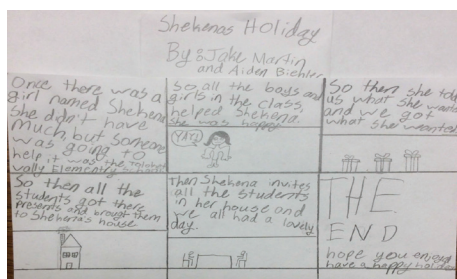 Shekenas Holiday
By: Jake Martin
and Aiden Biehler
Once there was a
girl named Shekena
she didn't have
much but someone
was going to
help it was the
wally Elementry
So all the boys and
girls in the class
helped Shekena.
She was happy
YAY
So then she told
us what she wanted
and we got
what she wanted
So then all the
students got there
presents and brought them
to Shekena's house
Then Shekena invites
all the students
in her house and
we all had a lovely
day.
THE
END
hope you enjoyed
have a happy holiday